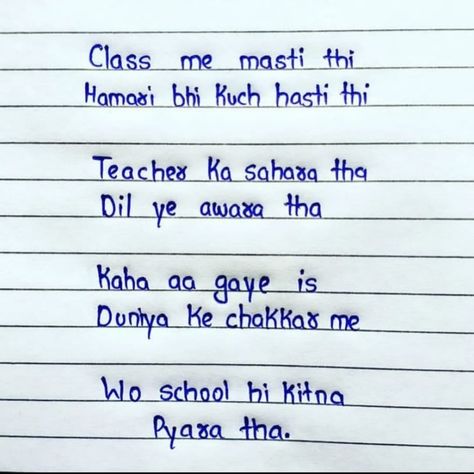 Class me masti thi
Hamari bhi Kuch hasti thi
Teacher Ka sahara tha
Dil ye awara tha
Kaha aa gaye is
Duniya Ke chakkar me
Wo school hi Kitna
Pyara tha.